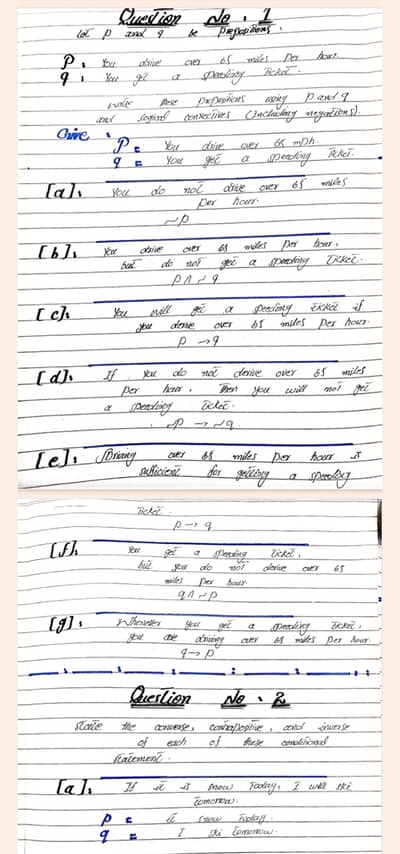 Question No. 1
Let p and q be Prepositions.
P: You drive over 65 miles Per hour.
q: You get a speeding Ticket.
Write these prepositions using P and q
and logical connectives (including negations).
Given:
P = You drive over 65 mph.
q = You get a speeding Ticket.
[a]: You do not drive over 65 miles
Per hour.
~P
[b]: You drive over 65 miles per hour,
but do not get a speeding ticket.
P ∧ ~q
[c]: You will get a speeding ticket if
you derive over 65 miles per hour.
P → q
[d]: If you do not derive over 65 miles
per hour, Then you will not get
a speeding ticket.
~P → ~q
[e]: Driving over 65 miles per hour is
sufficient for getting a speeding
Ticket.
P → q
[f]: You get a speeding ticket,
but you do not derive over 65
miles per hour.
q ∧ ~P
[g]: Whenever you get a speeding ticket,
you are driving over 65 miles per hour.
q → P
Question No. 2
State the converse, contrapositive, and inverse
of each of these conditional
statement.
[a]: If it is snow Today, I will ski
tomorrow.
P = it snow Today.
q = I ski tomorrow.